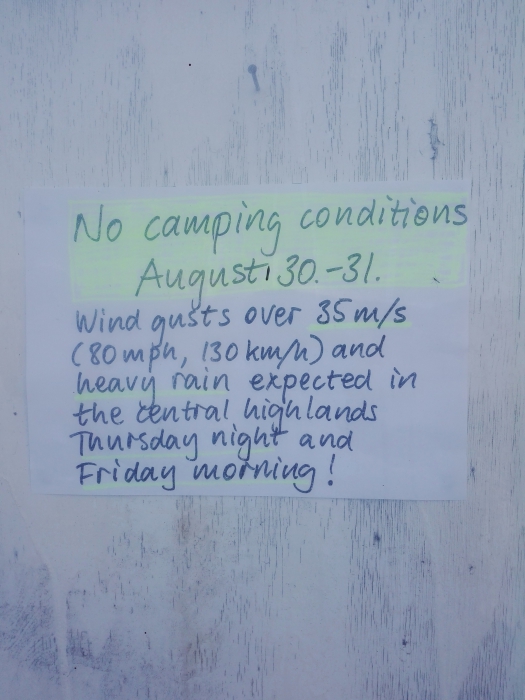 No camping conditions
August 30.-31.
Wind gusts over 35 m/s
(80 mph, 130 km/h) and
heavy rain expected in
the central highlands
Thursday night and
Friday morning!